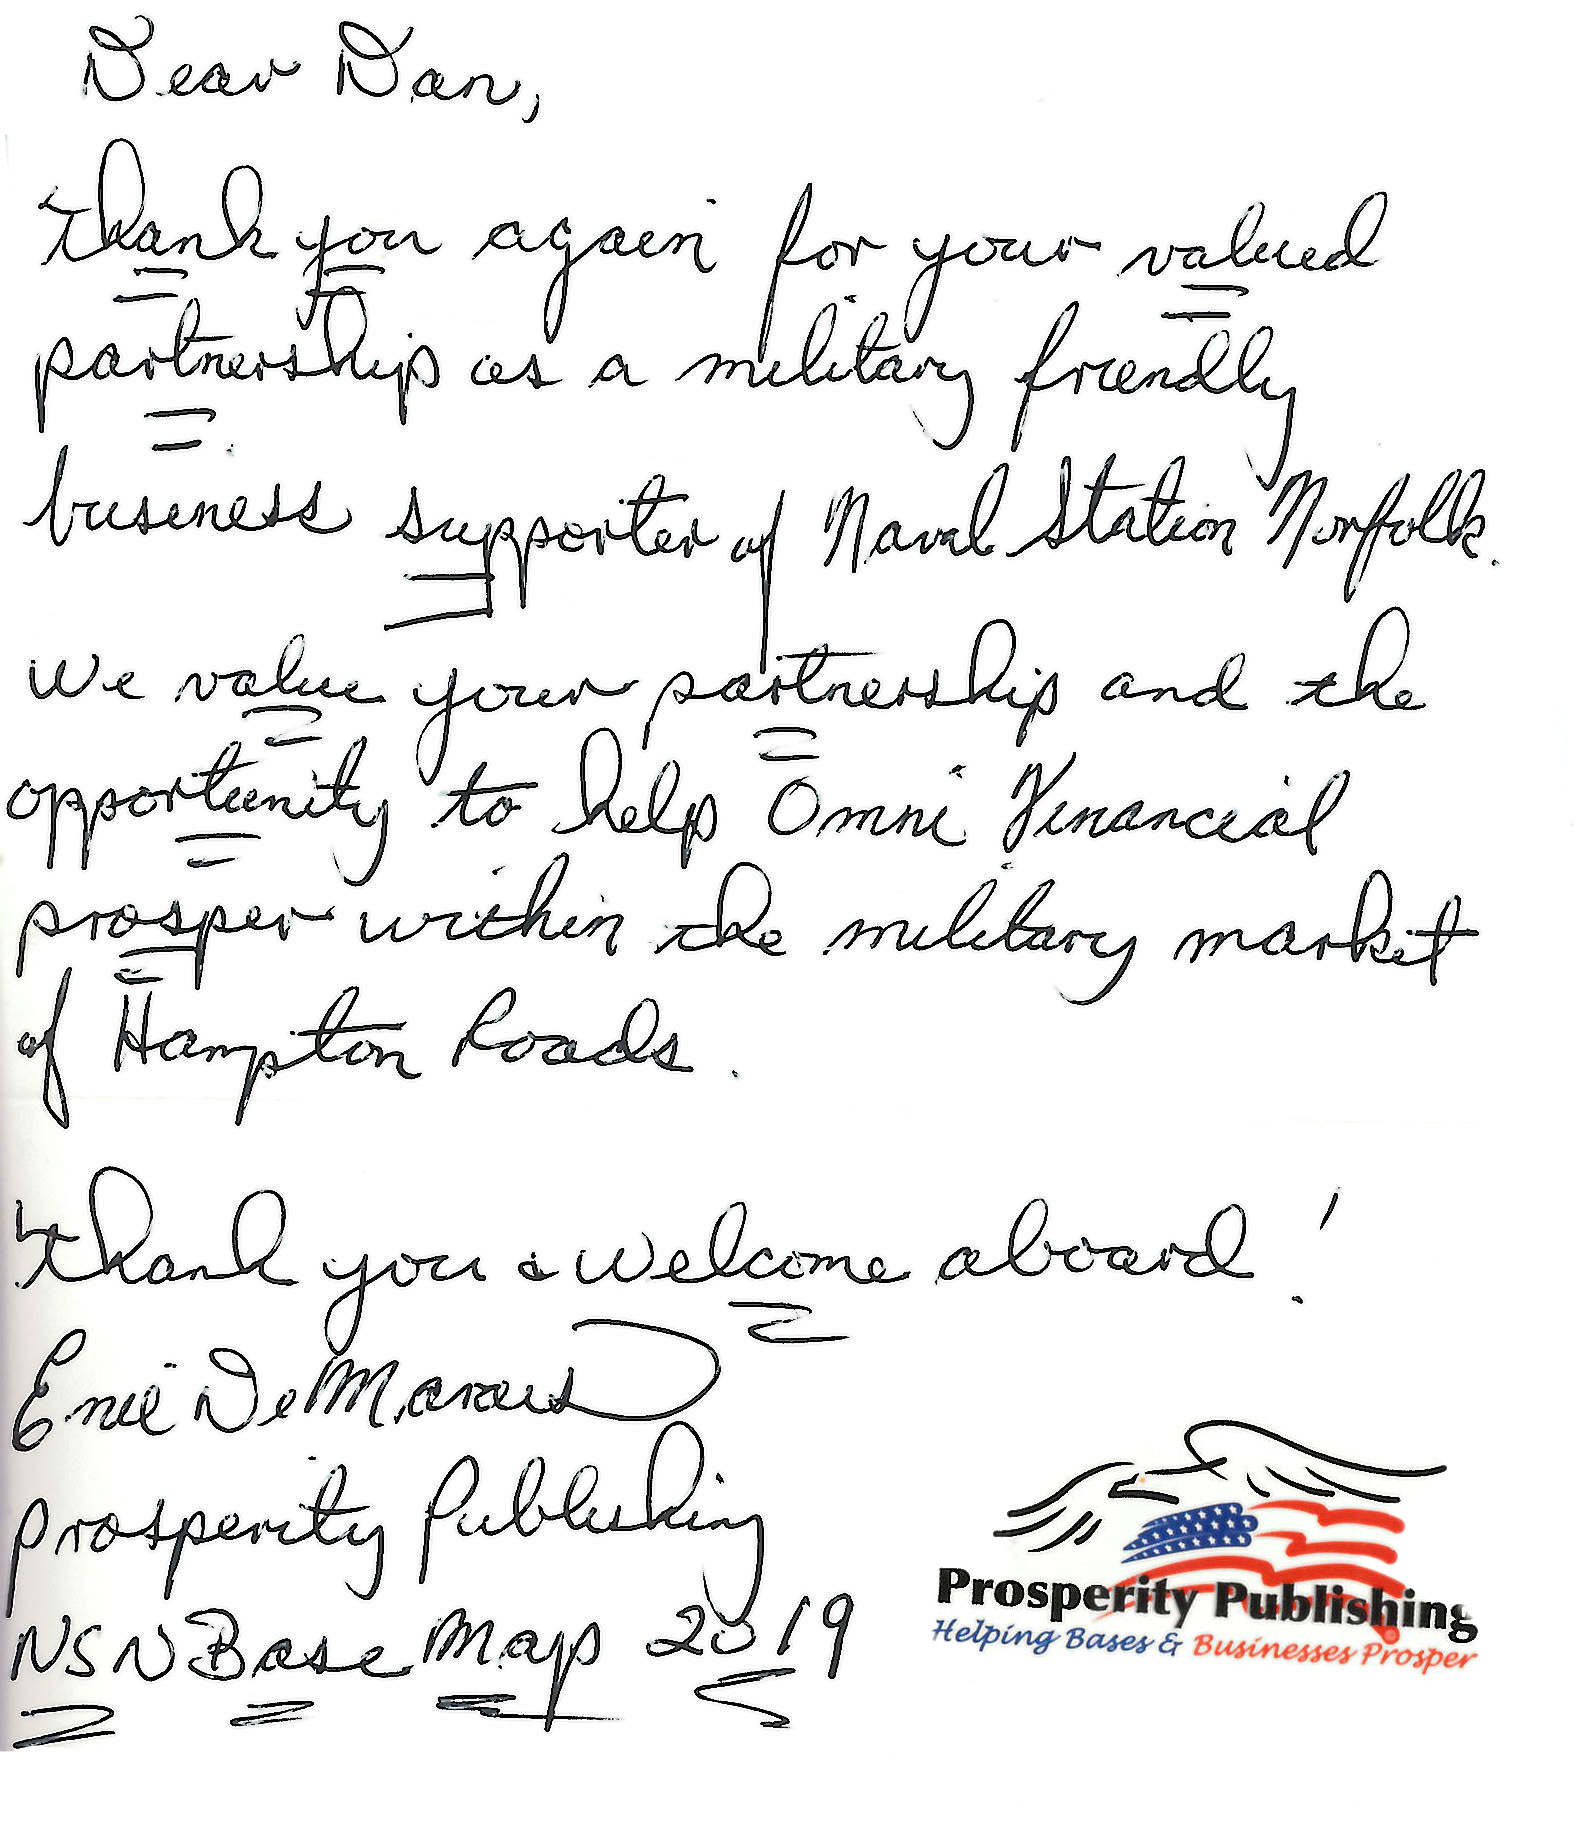 Dear Dan,
Thank you again for your valued
partnership as a military friendly
business supporter of Naval Station Norfolk.
We value your partnership and the
opportunity to help Omni Financial
prosper within the military market
of Hampton Roads.
Thank you & welcome aboard!
DeMarcus
Prosperity Publishing
NSN Base Map 2019
Prosperity Publishing
Helping Bases & Businesses Prosper